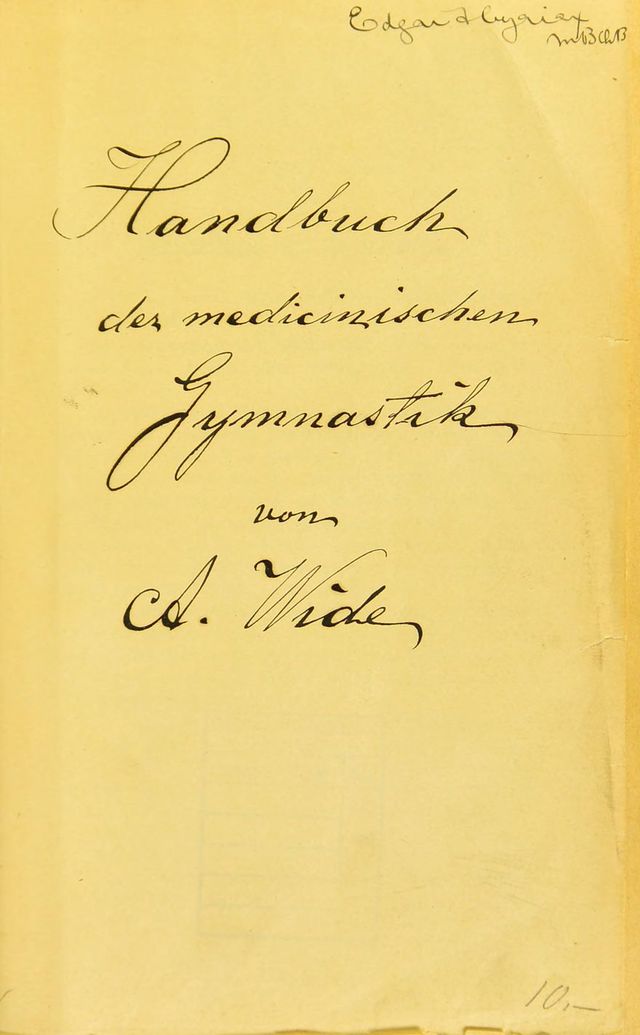 Edgar F Cyriax
MBChB
Handbuch
der medicinischen
Gymnastik
von
A. Wide
10.—